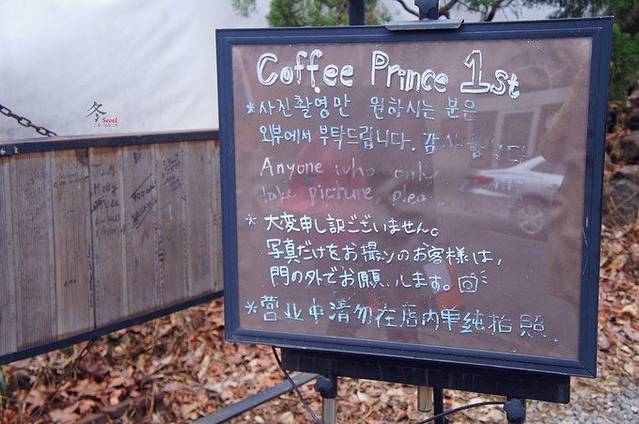 Coffee Prince 1st
*사진촬영만 원하시는 분은
외부에서 부탁드립니다. 감사합니다
Anyone who only
take picture, plea
* 大変申し訳ございません。
写真だけをお撮りのお客様は,
門の外でお願いします。
*营业中请勿在店内单纯拍照.
冬
Seoul